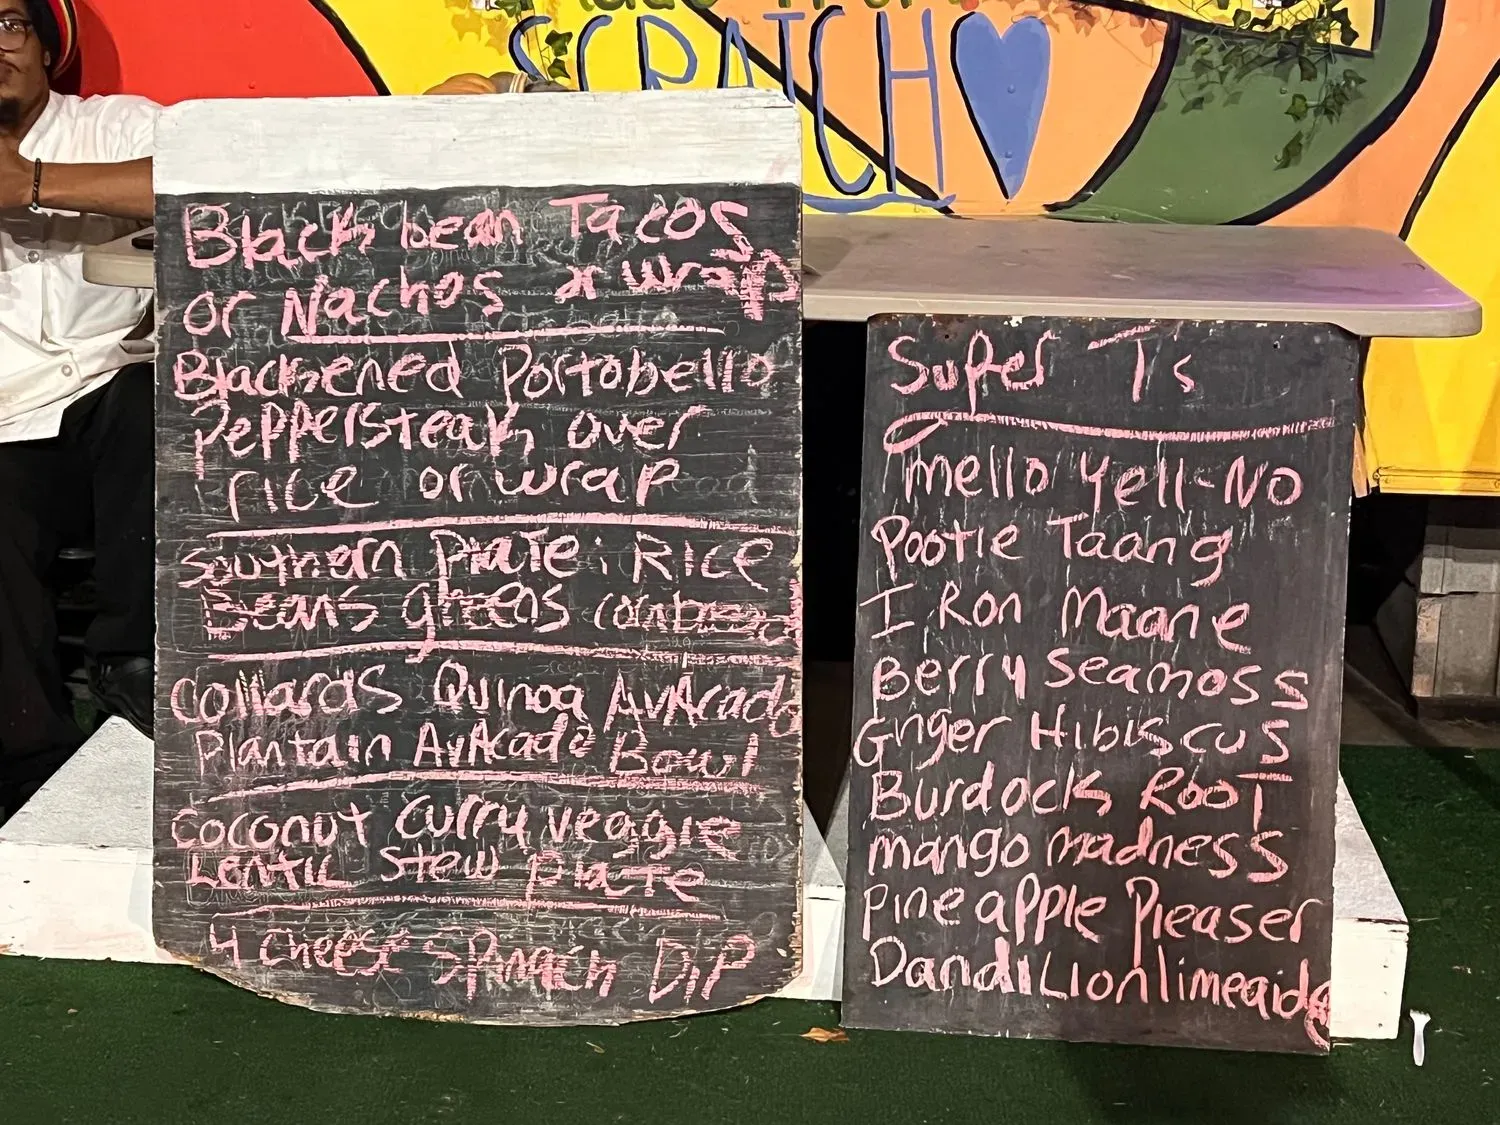 SCRATCH
Black bean Tacos
or Nachos or wrap
Blackened Portobello
Peppersteak over
rice or wrap
Southern plate: Rice
Beans greens cornbread
Collards Quinoa AvAcado
Plantain AvAcado Bowl
Coconut Curry veggie
Lentil stew plate
4 Cheese Spinach Dip
Super T's
mello yell-NO
Pootie Taang
I Ron Maane
Berry seamoss
Ginger Hibiscus
Burdock Root
mango madness
Pineapple Pleaser
DandiLionlimeaide